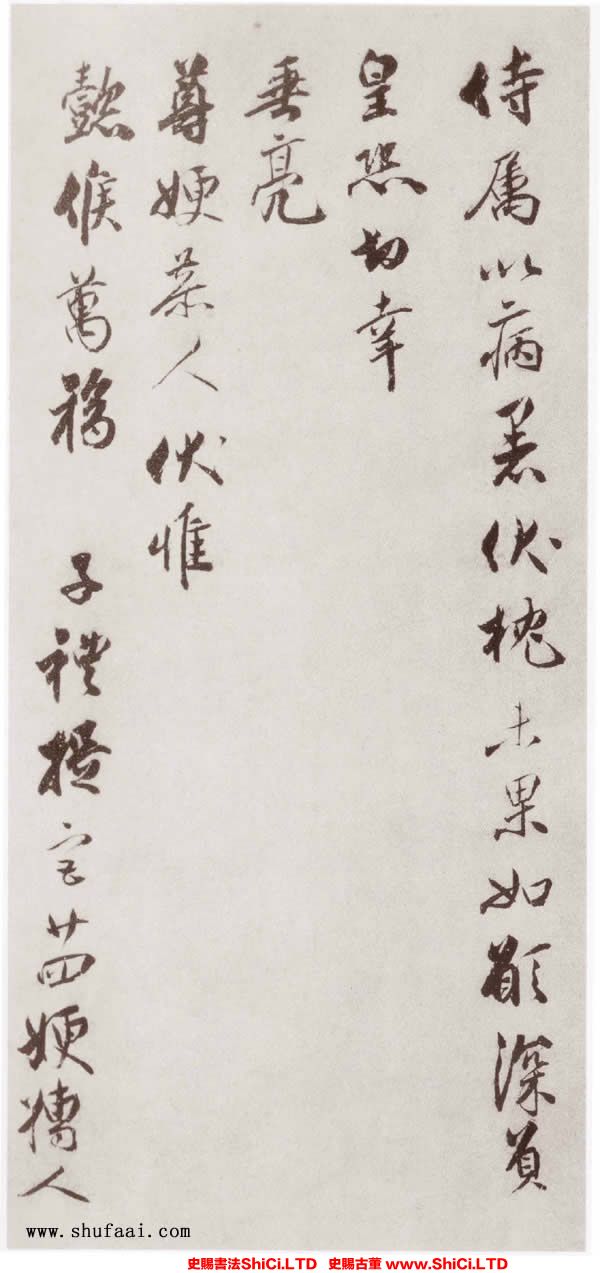 侍属以病暑伏枕未果如願深負
皇恐切幸
垂亮
尊嫂恭人伏惟
懿候萬福 子禮提宫廿四嫂孺人
www.shufaai.com
史賜書法ShiCi.LTD 史賜古董 www.ShiCi.LTD